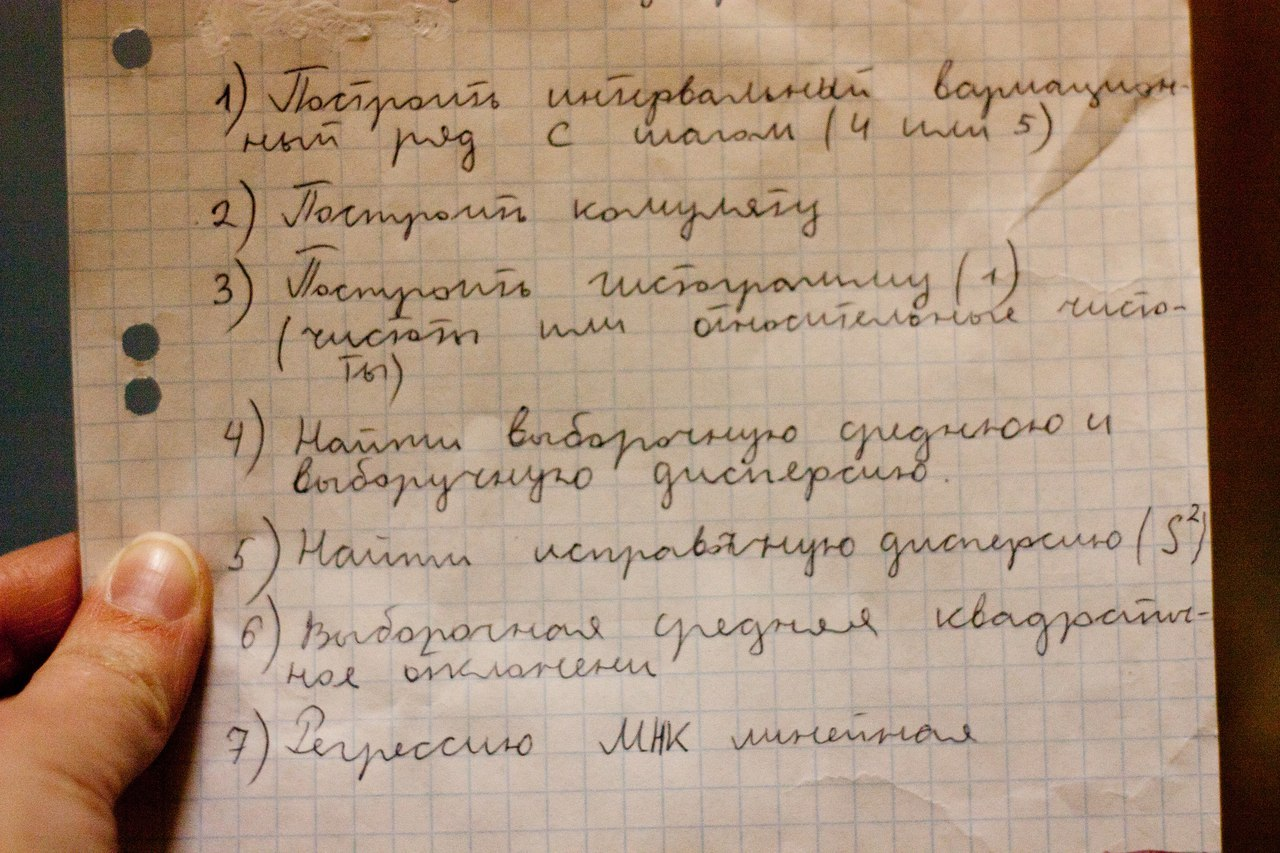 1) Построить интервальный вариацион-
ный ряд с шагом (4 или 5)
2) Построить комуляту
3) Построить гистограмму (1)
(чистоты или относительные чисто-
ты)
4) Найти выборочную среднюю и
выборучную дисперсию.
5) Найти исправчную дисперсию (S²)
6) Выборочная средняя квадратич-
ное отклонени
7) Регрессию МНК линейная